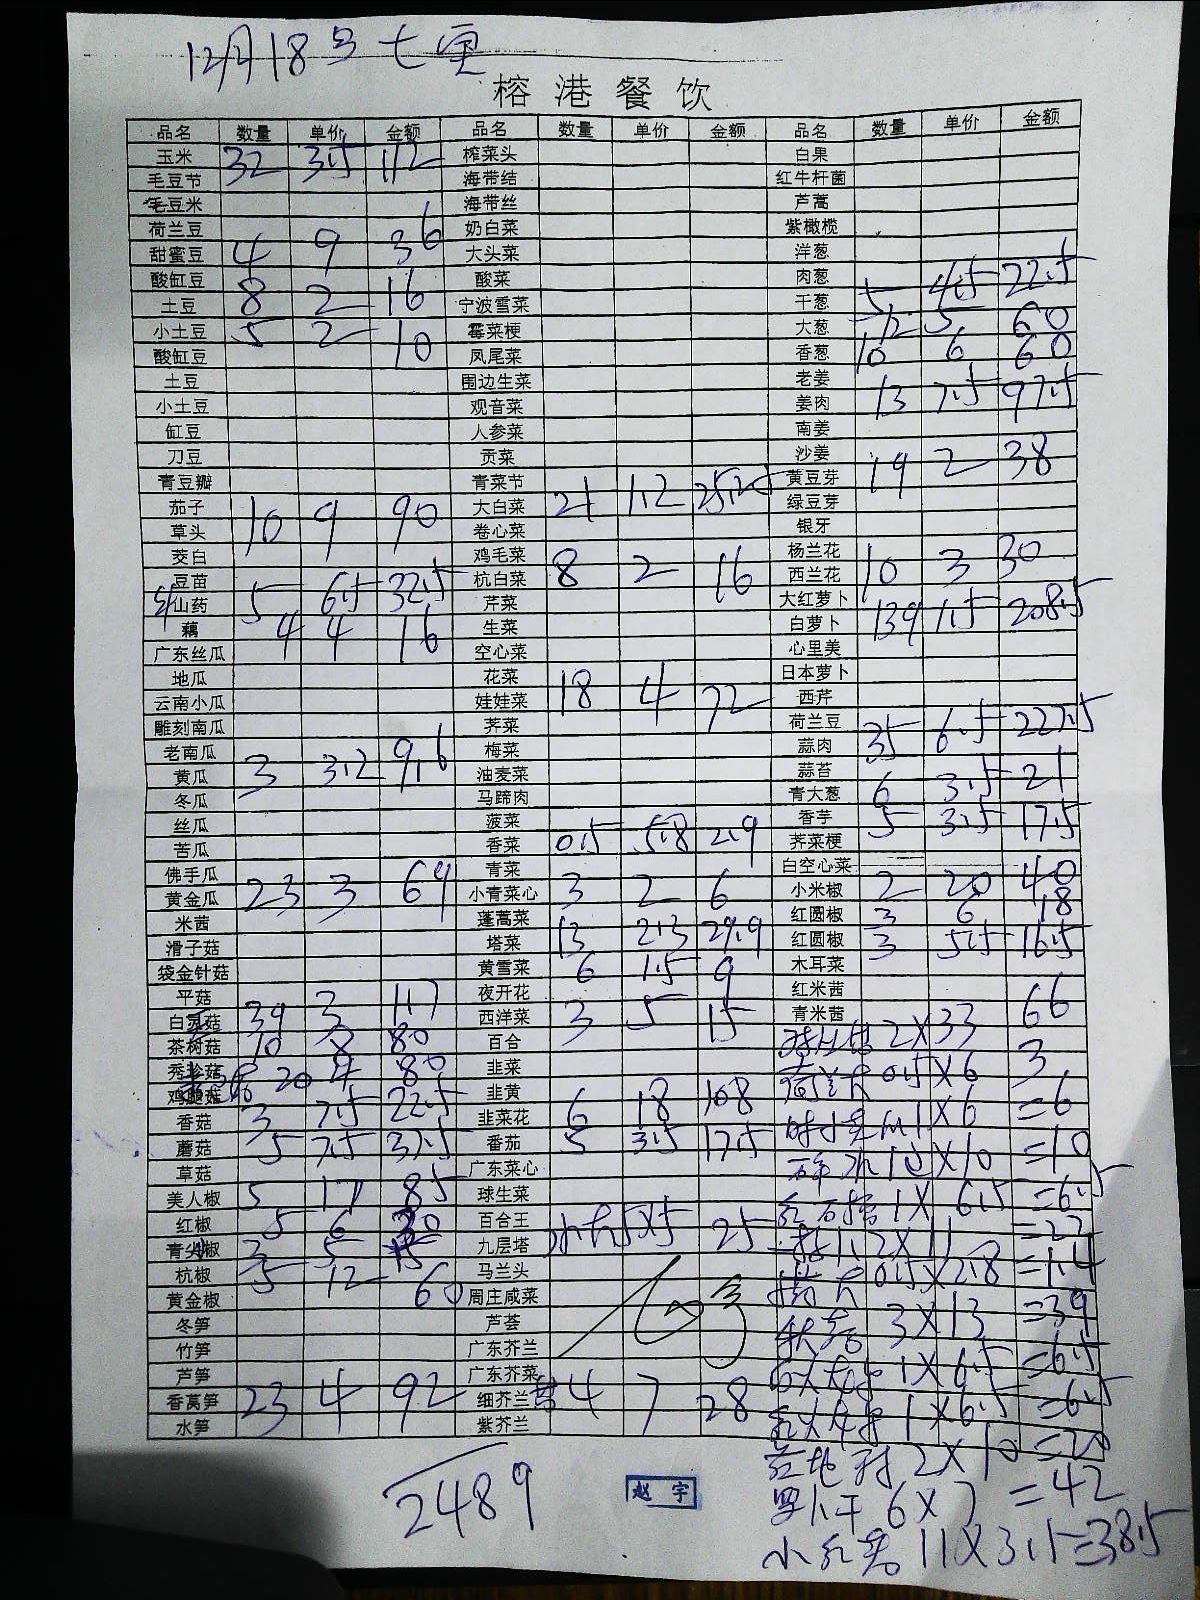 12月18号 七里
榕港餐饮
品名 数量 单价 金额 品名 数量 单价 金额 品名 数量 单价 金额
玉米 32 3.5 112 榨菜头 白果
毛豆节 海带结 红牛杆菌
毛豆米 海带丝 芦蒿
荷兰豆 奶白菜 紫橄榄
甜蜜豆 4 9 36 大头菜 洋葱
酸缸豆 酸菜 肉葱
土豆 8 2 16 宁波雪菜 干葱 5 4.5 22.5
小土豆 5 2 10 霉菜梗 大葱 12 5 60
酸缸豆 凤尾菜 香葱 10 6 60
土豆 围边生菜 老姜
小土豆 观音菜 姜肉 13 7.5 97.5
缸豆 人参菜 南姜
刀豆 贡菜 沙姜
青豆瓣 青菜节 黄豆芽 19 2 38
茄子 10 9 90 大白菜 21 1.2 25.2 绿豆芽
草头 卷心菜 银牙
茭白 鸡毛菜 8 2 16 杨兰花
豆苗 杭白菜 西兰花 10 3 30
山药 5 6.5 32.5 芹菜 大红萝卜
藕 4 4 16 生菜 白萝卜 139 1.5 208.5
广东丝瓜 空心菜 心里美
地瓜 花菜 日本萝卜
云南小瓜 娃娃菜 18 4 72 西芹
雕刻南瓜 荠菜 荷兰豆
老南瓜 梅菜 蒜肉 35 6.5 227.5
黄瓜 3 3.2 9.6 油麦菜 蒜苔
冬瓜 马蹄肉 青大葱 6 3.5 21
丝瓜 菠菜 香芋 5 3.5 17.5
苦瓜 香菜 0.5 5.8 2.9 荠菜梗
佛手瓜 青菜 白空心菜
黄金瓜 23 3 69 小青菜心 3 2 6 小米椒 2 20 40
米茜 蓬蒿菜 红圆椒 3 6 18
滑子菇 塔菜 13 2.3 29.9 红圆椒 3 5.5 16.5
袋金针菇 黄雪菜 6 1.5 9 木耳菜
平菇 夜开花 红米茜
白灵菇 39 3 117 西洋菜 3 5 15 青米茜
茶树菇 10 8 80 百合 2X33 66
秀珍菇 20 4 80 韭菜 0.5X6 3
鸡腿菇 韭黄
香菇 3 7.5 22.5 韭菜花 6 18 108 1X6 =6
蘑菇 5 7.5 37.5 番茄 5 3.5 17.5
草菇 广东菜心 X10 =10
美人椒 5 17 85 球生菜 1X6.5 =6.5
红椒 5 6 30 百合王 5X5 25
青尖椒 3 5 15 九层塔 2X11 =22
杭椒 5 12 60 马兰头 0.5X2.8 =1.4
黄金椒 周庄咸菜
冬笋 芦荟 3X13 =39
竹笋 广东芥兰
芦笋 广东芥菜 1X6.5 =6.5
香莴笋 23 4 92 细芥兰 4 7 28 1X6.5 =6.5
水笋 紫芥兰
2X10 =20
2489 赵宇 6X7 =42
11X3.5=38.5